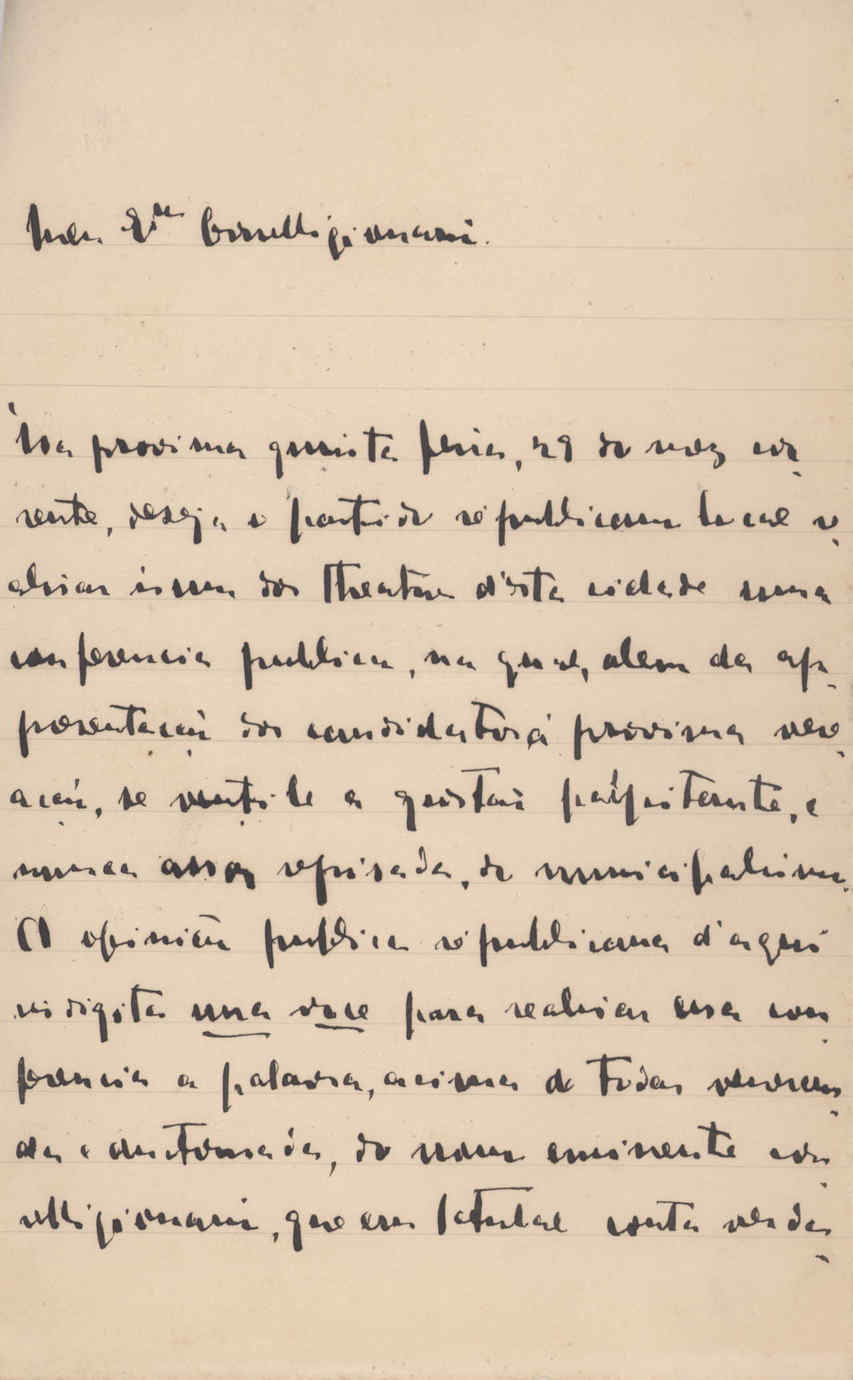 Meu Ex.mo Correlligionario.
Na proxima quinta feira, 29 do mez cor
rente, deseja o partido republicano local re
alisar n'um dos theatros d'esta cidade uma
conferencia publica, na qual, alem da ap
presentação dos candidatos á proxima vere
ação, se ventile a questão palpitante, e
nunca assaz repisada, do municipalismo.
A opinião publica republicana d'aqui
indigita una voce para realisar essa con
ferencia a palavra, acima de todas veneran
da e auctorisada, do nosso eminente cor
religionario, que em Setubal conta verda